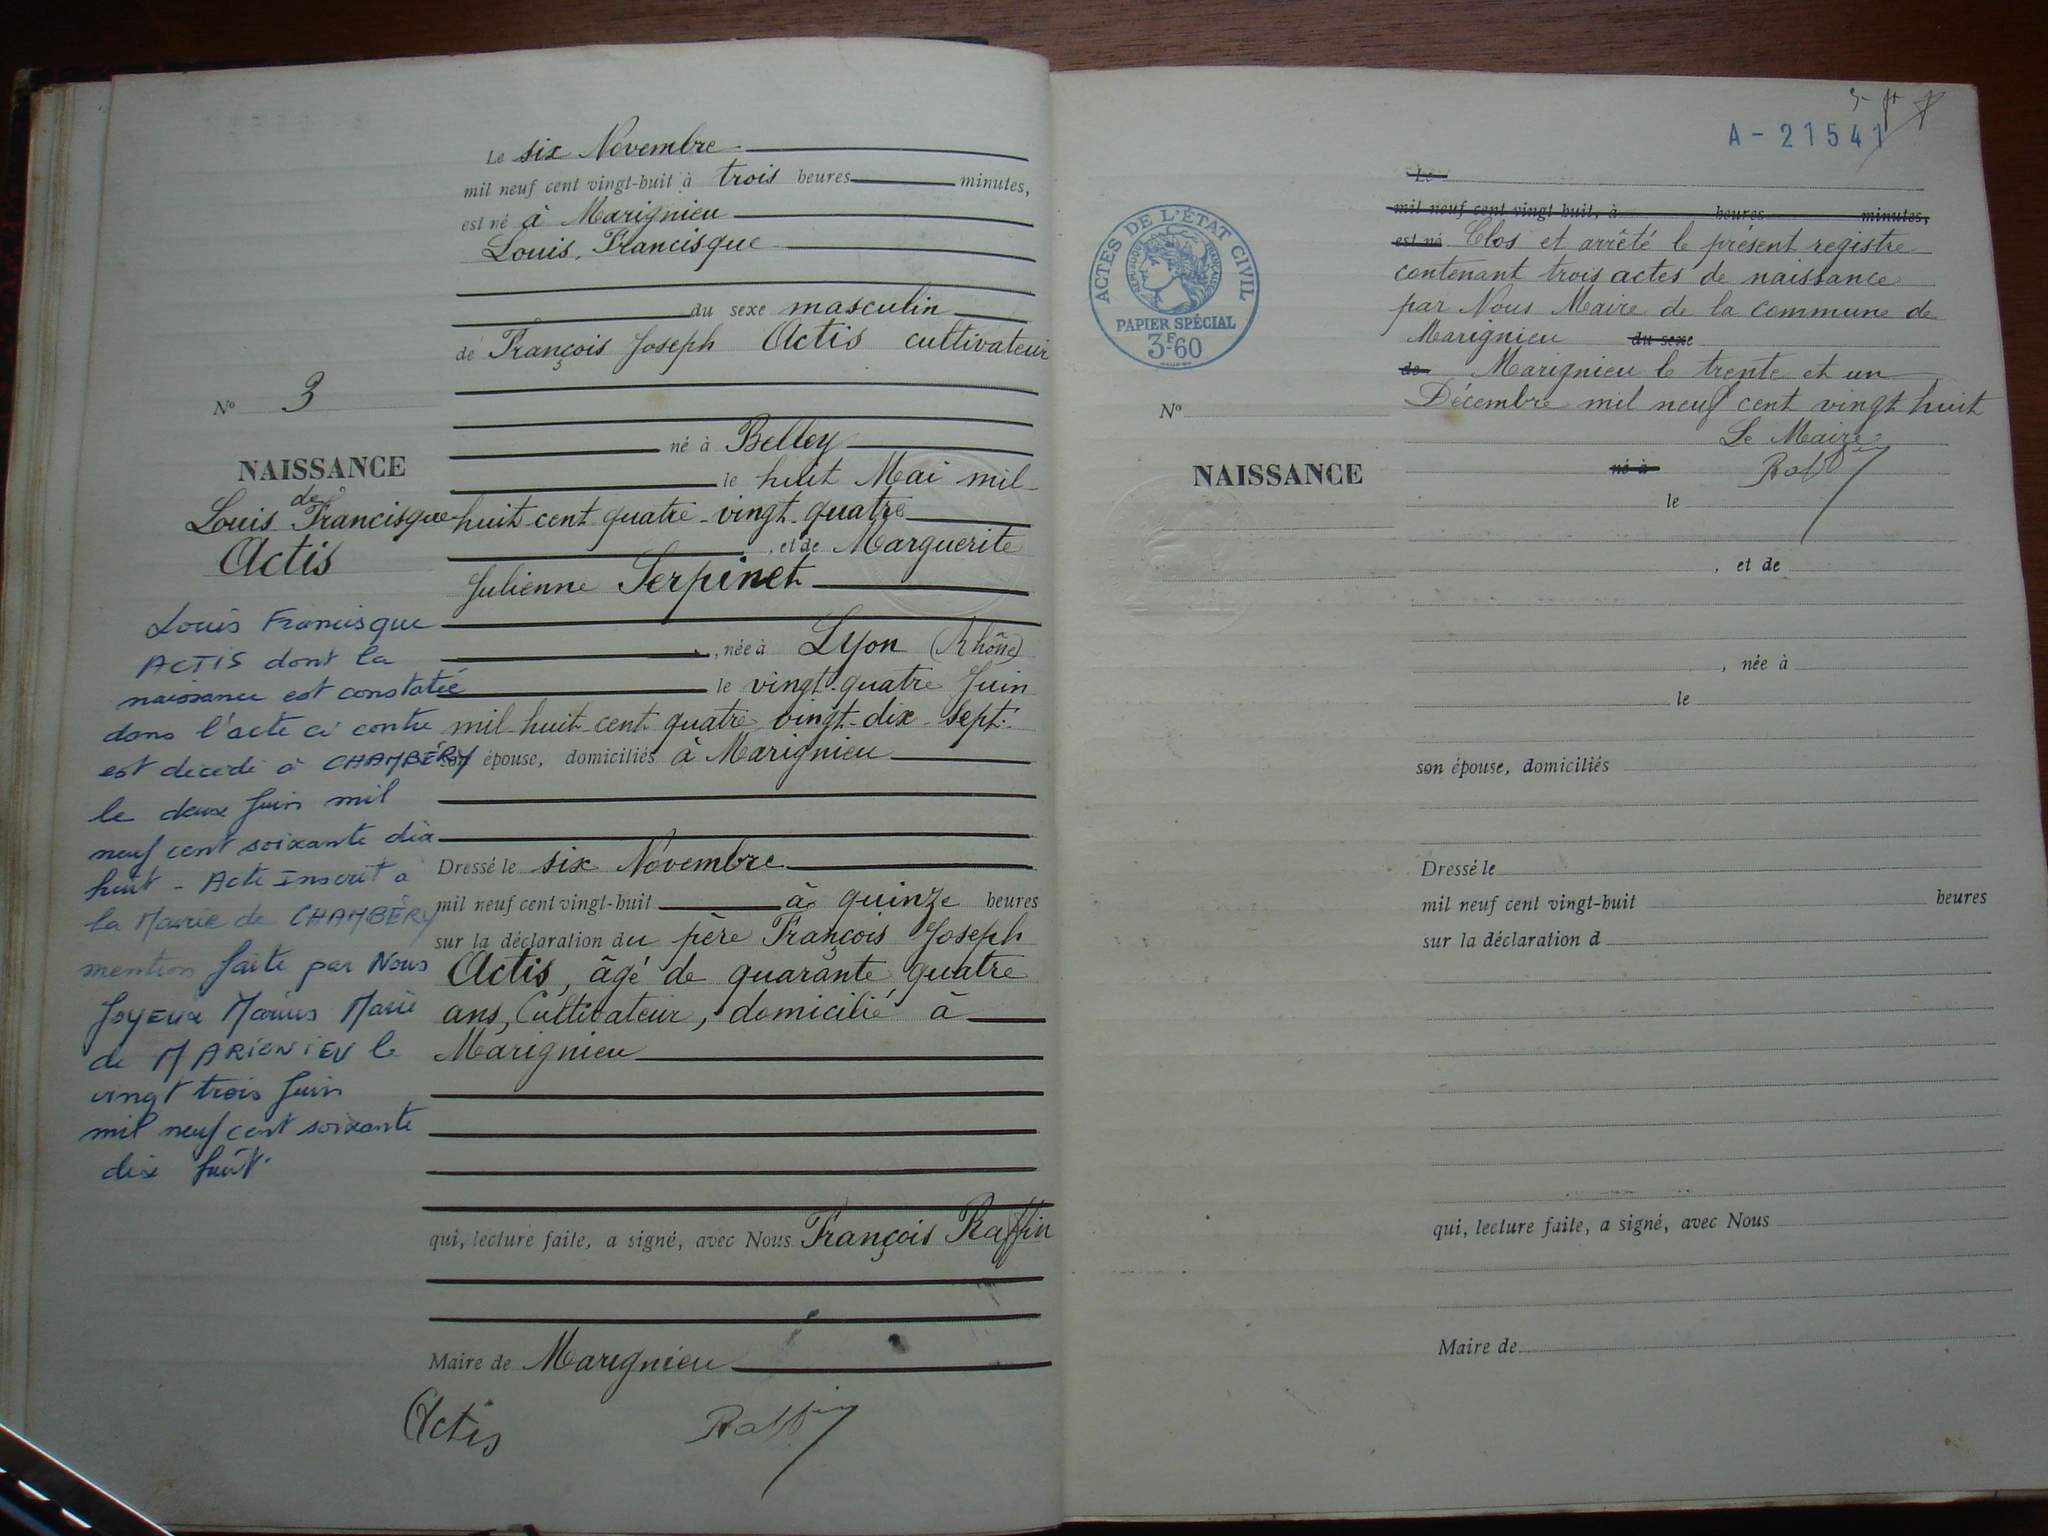 Le six Novembre
mil neuf cent vingt-huit à trois heures minutes,
est né à Marignieu
Louis, Francisque
du sexe masculin
de François Joseph Actis cultivateur
né à Belley
le huit Mai mil
huit cent quatre-vingt-quatre
, et de Marguerite
Julienne Serpinet
, née à Lyon (Rhône)
le vingt-quatre Juin
mil-huit-cent quatre vingt-dix-sept
son épouse, domiciliés à Marignieu
Dressé le six Novembre
mil neuf cent vingt-huit à quinze heures
sur la déclaration du père François Joseph
Actis, âgé de quarante quatre
ans, Cultivateur, domicilié à
Marignieu
qui, lecture faite, a signé, avec Nous François Raffin
Maire de Marignieu
Actis Raffin
No 3
NAISSANCE
de
Louis Francisque
Actis
Louis Francisque
ACTIS dont la
naissance est constatée
dans l'acte ci contre
est décédé à CHAMBÉRY
le deux Juin mil
neuf cent soixante dix
huit - Acte Inscrit à
la Mairie de CHAMBÉRY
mention faite par Nous
JOYEUX Marius Marie
de MARIGNIEU le
vingt trois Juin
mil neuf cent soixante
dix huit.
A-21541
ACTES DE L'ÉTAT CIVIL
RÉPUBLIQUE FRANÇAISE
PAPIER SPÉCIAL
3F60
Le
mil neuf cent vingt huit, à heures minutes,
est né Clos et arrêté le présent registre
contenant trois actes de naissance
par Nous Maire de la commune de
Marignieu du sexe
de Marignieu le trente et un
Décembre mil neuf cent vingt huit
Le Maire
né à Raffin
le
No
NAISSANCE
, et de
, née à
le
son épouse, domiciliés
Dressé le
mil neuf cent vingt-huit heures
sur la déclaration d
qui, lecture faite, a signé, avec Nous
Maire de